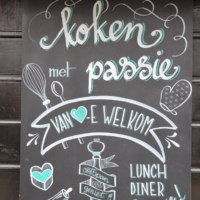 koken
met passie
VAN♥E WELKOM
LUNCH
DINER